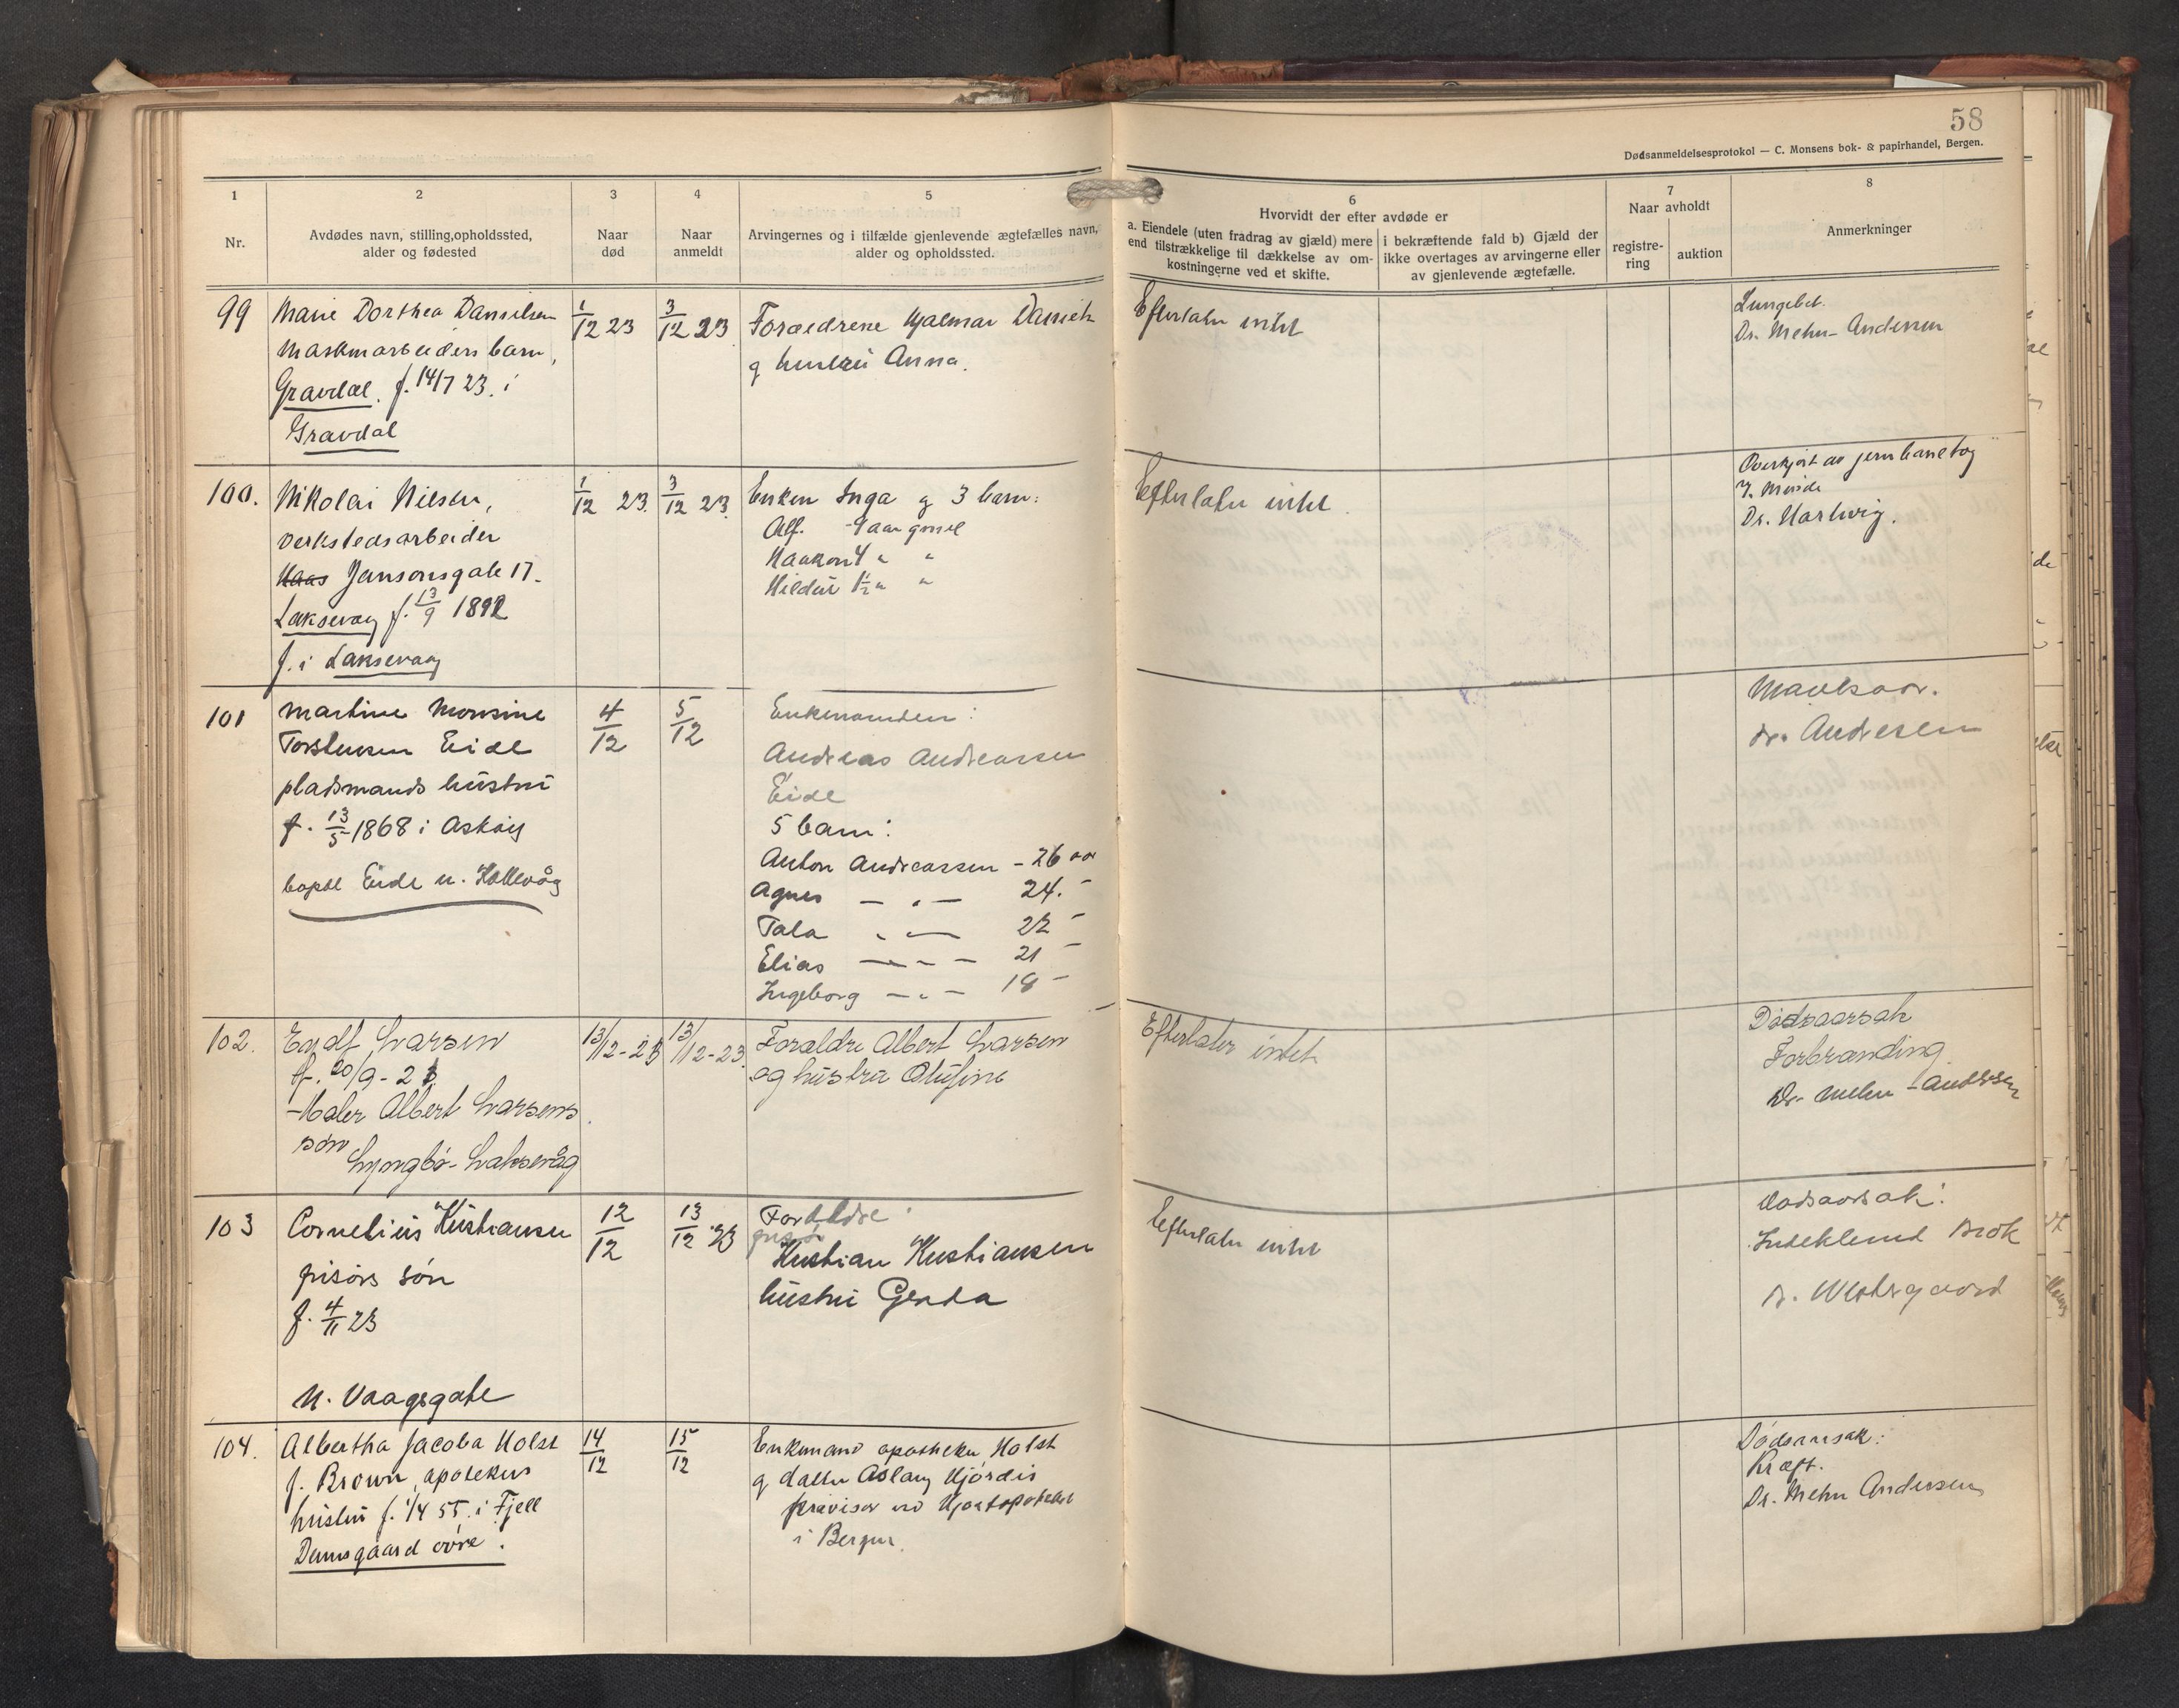 58
Dødsanmeldelsesprotokol — C. Monsens bok- & papirhandel, Bergen.
1
Nr.
2
Avdødes navn, stilling, opholdssted,
alder og fødested
3
Naar
død
4
Naar
anmeldt
5
Arvingernes og i tilfælde gjenlevende ægtefælles navn,
alder og opholdssted.
6
Hvorvidt der efter avdøde er
a. Eiendele (uten fradrag av gjæld) mere
end tilstrækkelige til dækkelse av om-
kostningerne ved et skifte.
i bekræftende fald b) Gjæld der
ikke overtages av arvingerne eller
av gjenlevende ægtefælle.
7
Naar avholdt
registre-
ring
auktion
8
Anmerkninger
99
Marie Dorthea Danielsen
Maskinarbeiders barn,
Gravdal. f. 14/7 23. i
Gravdal
1/12 23
3/12 23
Forældrene Hjalmar Daniels
g hustru Anna.
Efterlater intet
Lungebet.
Dr. Mehn-Andersen
100.
Nikolai Nilsen,
verkstedsarbeider
Haas Jansonsgate 17.
Laksevaag f. 13/9 1892
f. i Laksevaag
1/12 23.
3/12 23.
Enken Inga g 3 barn:
Alf. 9 aar gml
Haakon 4 " "
Hildur 1 1/2 " "
Efterlater intet.
Overkjørt av jernbanetog
Dr. Hartwig.
101
Martine Monsine
Torstensen Eide
pladsmands hustru
f. 13/5 1868 i Askøy
bopæl Eide n. Hollevåg
4/12
5/12
Enkemanden:
Andreas Andreassen
Eide
5 barn:
Anton Andreassen - 26 aar
Agnes — " — 24. -
Tala " — 22 -
Elias — " — 21 -
Ingeborg — " — 18 -
dr. Andresen
102.
Eydlf Larsen
f. 20/9-23
Maler Albert Larsens
søn
Lyngbø-Laksevåg
13/12-23
13/12-23.
Foraldre Albert Larsen
og hustru Olufine
Efterlater intet
Dødsaarsak
Forbrænding.
Dr. Mehn-Andersen
103
Cornelius Kristiansen
frisørs søn
f. 4/11 23
N. Vaagsgate
12/12
13/12 23
Forældre:
frisør
Kristian Kristiansen
hustru Gerda
Efterlater intet
Dødsaarsak:
Indeklemt Brok
dr. Westergaard
104.
Albertha Jacoba Holst
f. Brown, apotekers
hustru f. 1/4 55. i Fjell
Damsgaard øvre.
14/12
15/12
Enkemand apotheker Holst
g datter Aslaug Hjørdis
provisor ved Hjorteapoteket
i Bergen.
Dødsaarsak:
Kræft.
Dr. Mehn Andersen